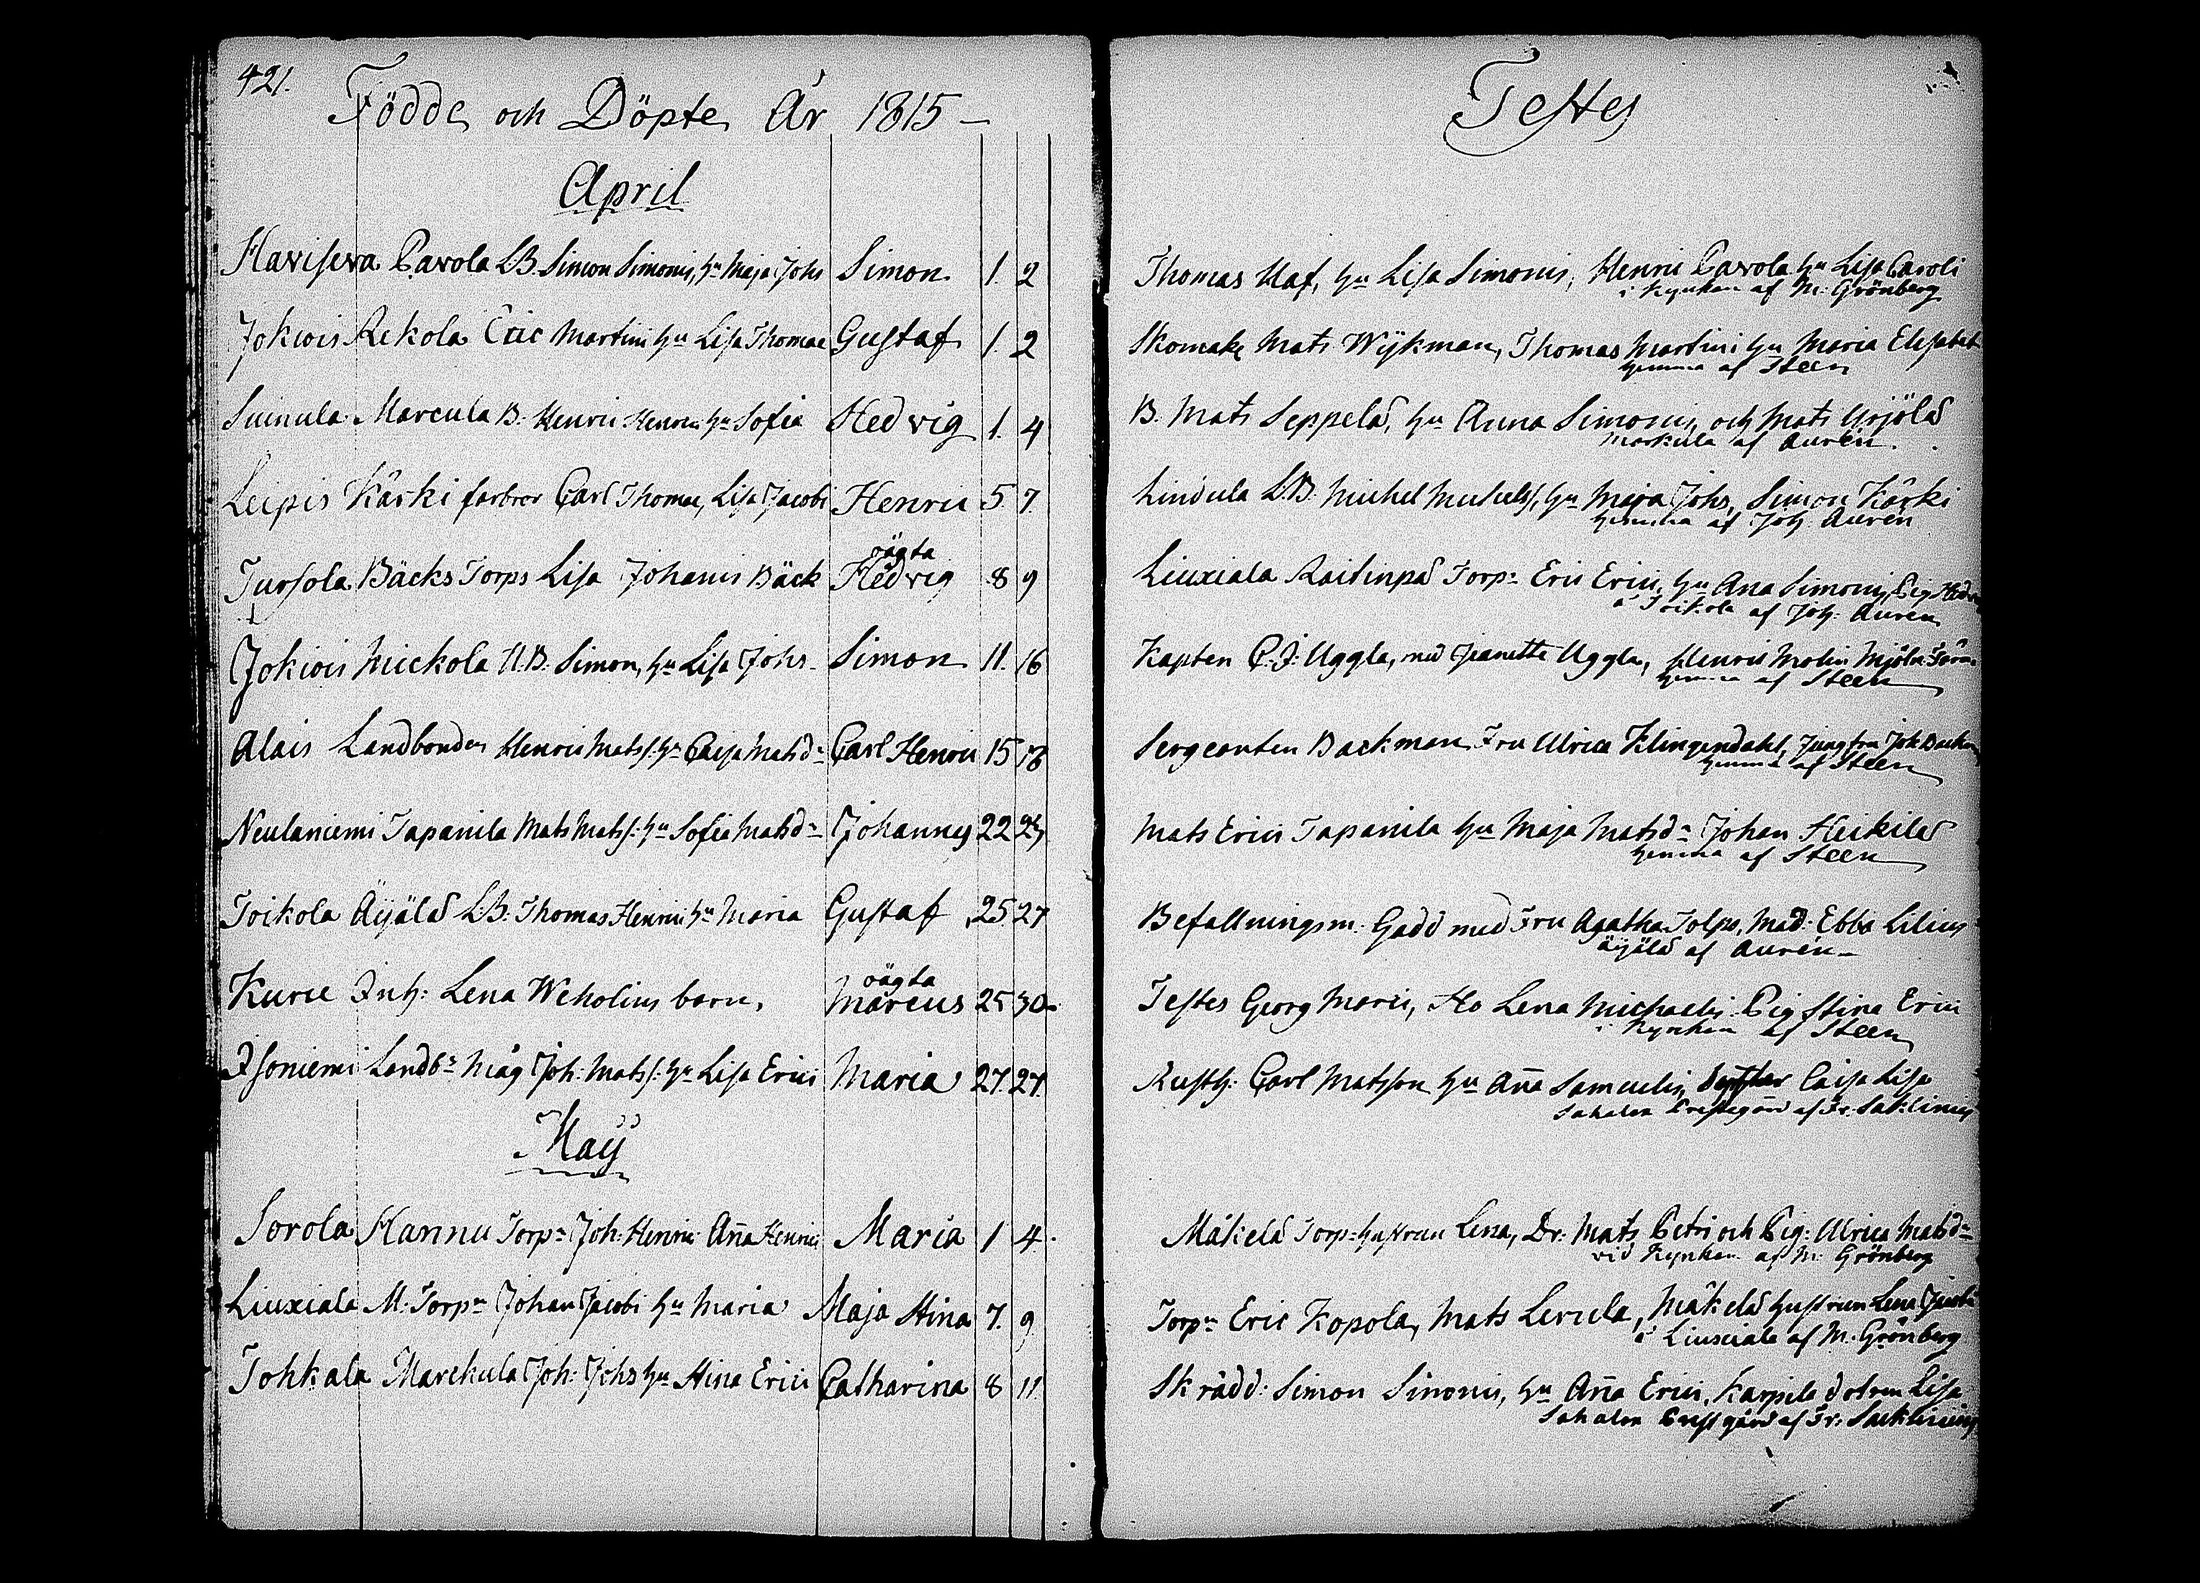 421.
Födde och Döpte År 1815 –
April
Havisева Pavola LB. Simon Simonis, hu Maja Johs Simon 1. 2
Jokiois Rekola Eric Martini hu Lisa Thomae Gustaf 1. 2
Suinula Marcula B. Henric Henrici hu Sofia Hedvig 1. 4
Leipis Kärki farbror Carl Thomae, Lisa Jacobi Henric 5. 7.
oägta
Tursola Bäcks Torps Lisa Johanis Bäck Hedvig 8 9
Jokiois Mickola U.B. Simon, hu Lisa Johs Simon 11. 16
Alais Landbonden Henric Mats: hu Caisa Matsdr Carl Henric 15 18
Neulaniemi Tapanila Mats Mats: hu Sofia Matsdr Johannes 22
Toikola Äijälä LB: Thomas Henrici hu Maria Gustaf 25. 27
oägta
Kurie Inh: Lena Weholius barn, Marcus 25 30
Isoniemi Landbr Måg Joh: Mats: hu Lisa Erici Maria 27. 27.
Maÿ
Sorola Hannu Torpr Joh: Henric Aña Henrici Maria 1 4.
Liuxiala M: Torpr Johan Jacobi hu Maria Maja Stina 7. 9
Tohkala Marckula Joh: Johs hu Stina Erici Catharina 8 11
Testes
Thomas Haf, hu Lisa Simonis, Henric Pavola hu Lisa Caroli
i Kyrkan af M: Grönberg
Skomak Mats Wijkman, Thomas Martini hu Maria Elisabet
hemma af Steen
B. Mats Seppelä, hu Anna Simonis, och Mats Yrjölä
Markula af Aurén.
Lindula LB: Michel Michels:, hu Maja Johs, Simon Kärki
hemma af Joh: Aurén
Liuxiala Raitinpä Torpr Eric Erici, hu Ana Simonis, Pig Hedv
å Toikola af Joh: Auren
Kapten C. J: Uggla, med Jeanette Uggla, Henric Molin
hemma af Steen
Sergeanten Backman Fru Ulrica Klingendahl, Jungfru Joh Backm
hemma af Steen
Mats Erici Tapanila hu Maja Matsdr Johan Heikilä
hemma af Steen
Befallningsm. Gadd med Fru Agatha Tolpo, Mad: Ebba Lilius
äijälä af Aurén –
Testes Georg Marci, Ho Lena Michaelis Pig Stina Erici
i Kyrkan af Steen
Rusth: Carl Matsson hu Aña Samuelis, Caisa Lisa
Sahalax Prestegård af Fr: Sacklinius
Mäkelä Torp: hustrun Lena, Dr: Mats Petri och Pig: Ulrica Matsdr
vid Kyrkan af M: Grönberg
Torpr Eric Kopola, Mats Lerula, Mäkelä hustrun Lena Jacobi
å Liuxiala af M: Grönberg
Skrädd: Simon Simonis, hu Aña Erici, Karpila dotren Lisa
Sahalax Prestgård af Fr: Sacklinius